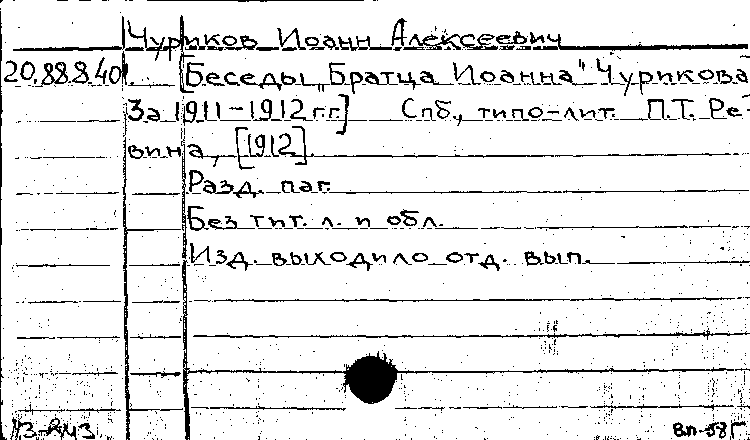 Чуриков Иоанн Алексеевич
20.88.8.40 [Беседы „Братца Иоанна" Чурикова
За 1911-1912 г.г.] Спб., типо-лит. П.Т. Ре-
вина, [1912].
Разд. паг.
Без тит. л. и обл.
Изд. выходило отд. вып.
Вл-58г